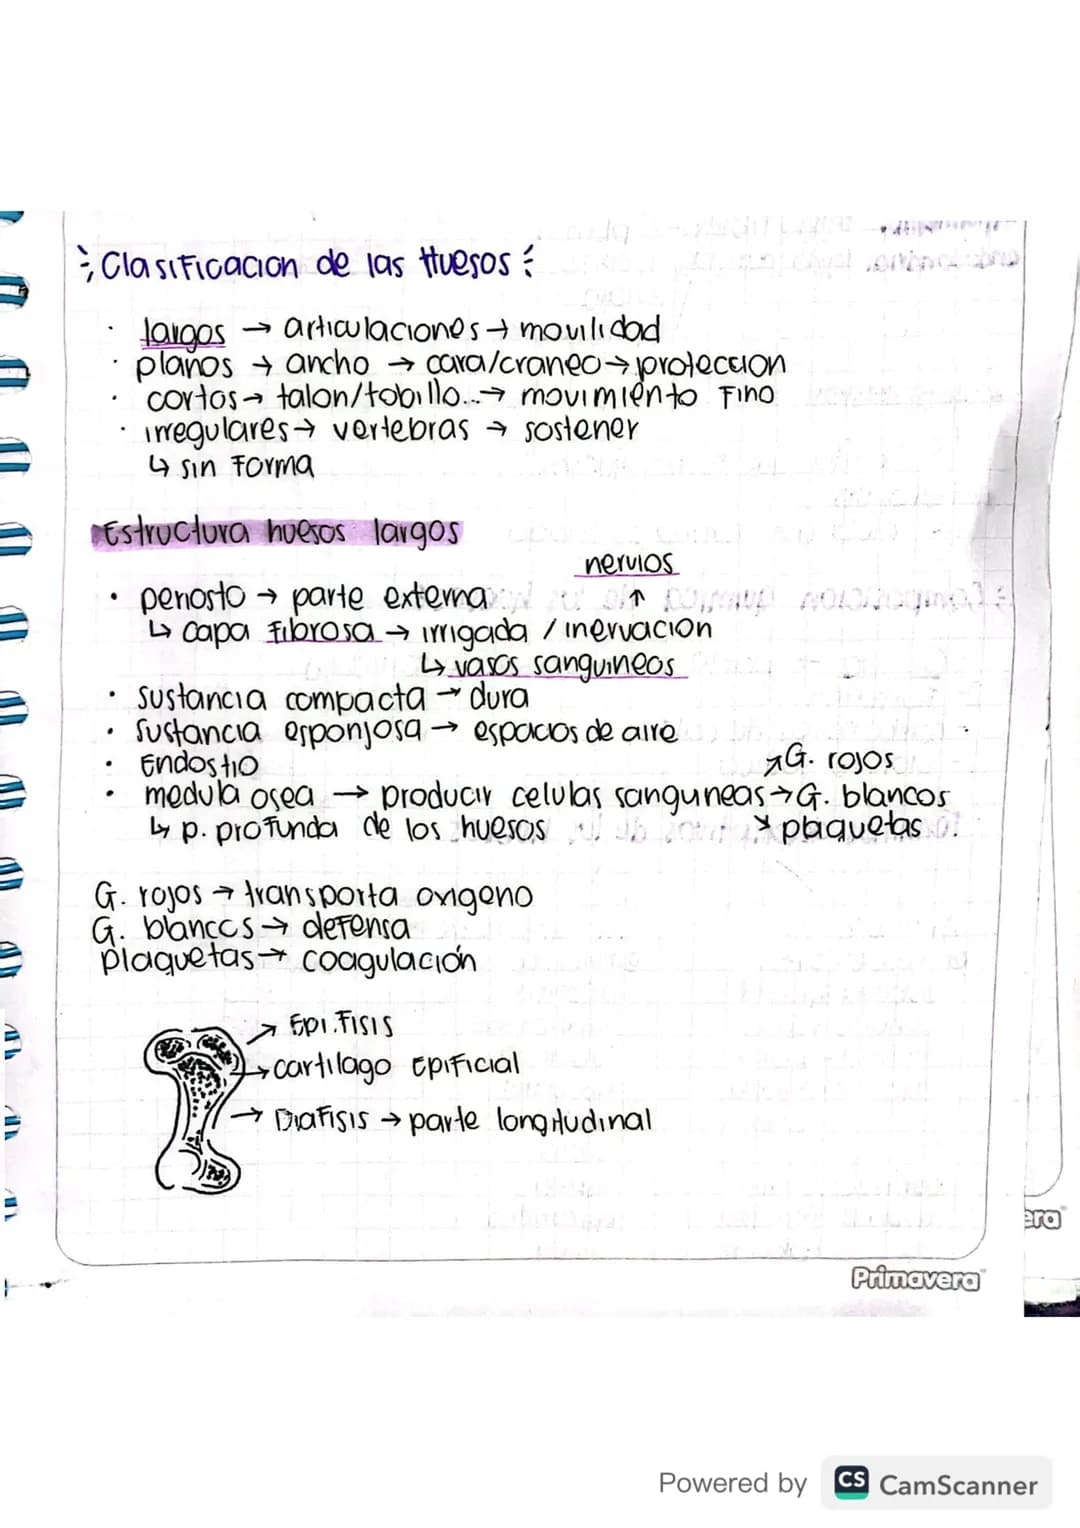 Clasificacion de las Huesos
· largos → articulaciones → movilidad
· planos → ancho → cara/craneo → proteccion
· cortos → talon/tobillo... → movimiento Fino
· irregulares → vertebras → sostener
↳ sin Forma
Estructura huesos largos
nervios
• periosto → parte externa ↑
↳ capa Fibrosa → irrigada / inervacion
↳ vasos sanguineos
• sustancia compacta → dura
• Sustancia esponjosa → espacios de aire
• Endostio ↗ G. rojos
• medula osea → producir celulas sanguneas → G. blancos
↳ p. profunda de los huesos ↘ plaquetas
G. rojos → transporta oxigeno
G. blancos → defensa
plaquetas → coagulación
↗ Epi.Fisis
→ cartilago Epificial
→ Diafisis → parte longitudinal
era
Primavera
Powered by CS CamScanner